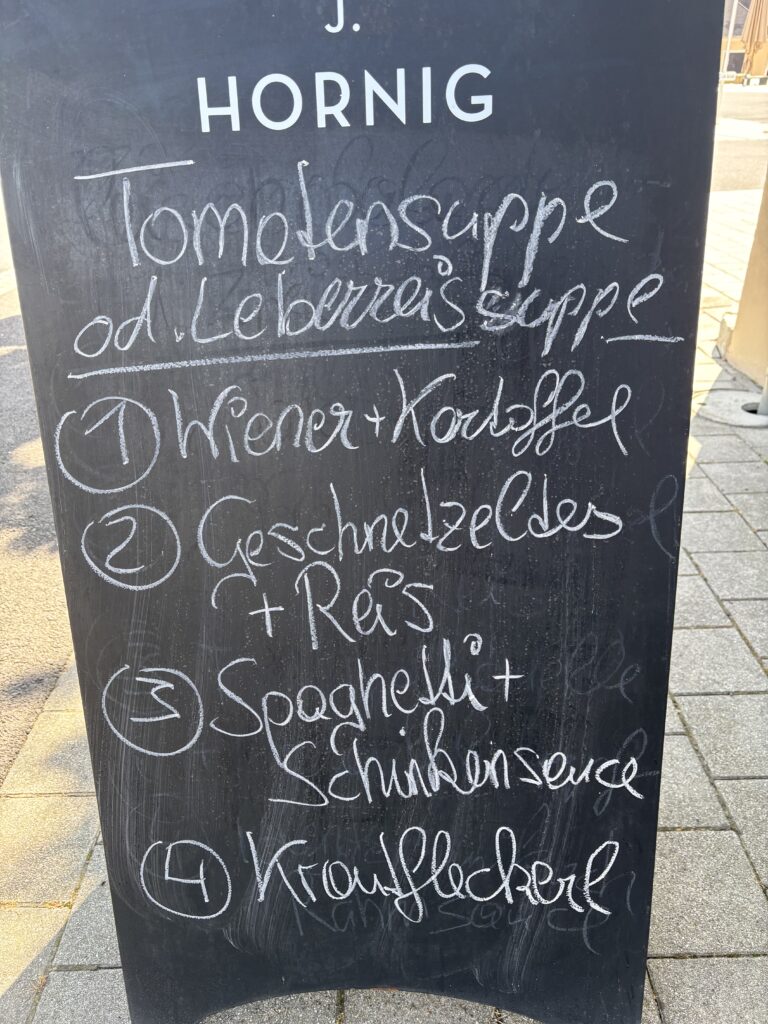 J.
HORNIG
Tomatensuppe
od. Leberreissuppe
1 Wiener + Kartoffel
2 Geschnetzeltes
+ Reis
3 Spaghetti +
Schinkensauce
4 Krautfleckerl